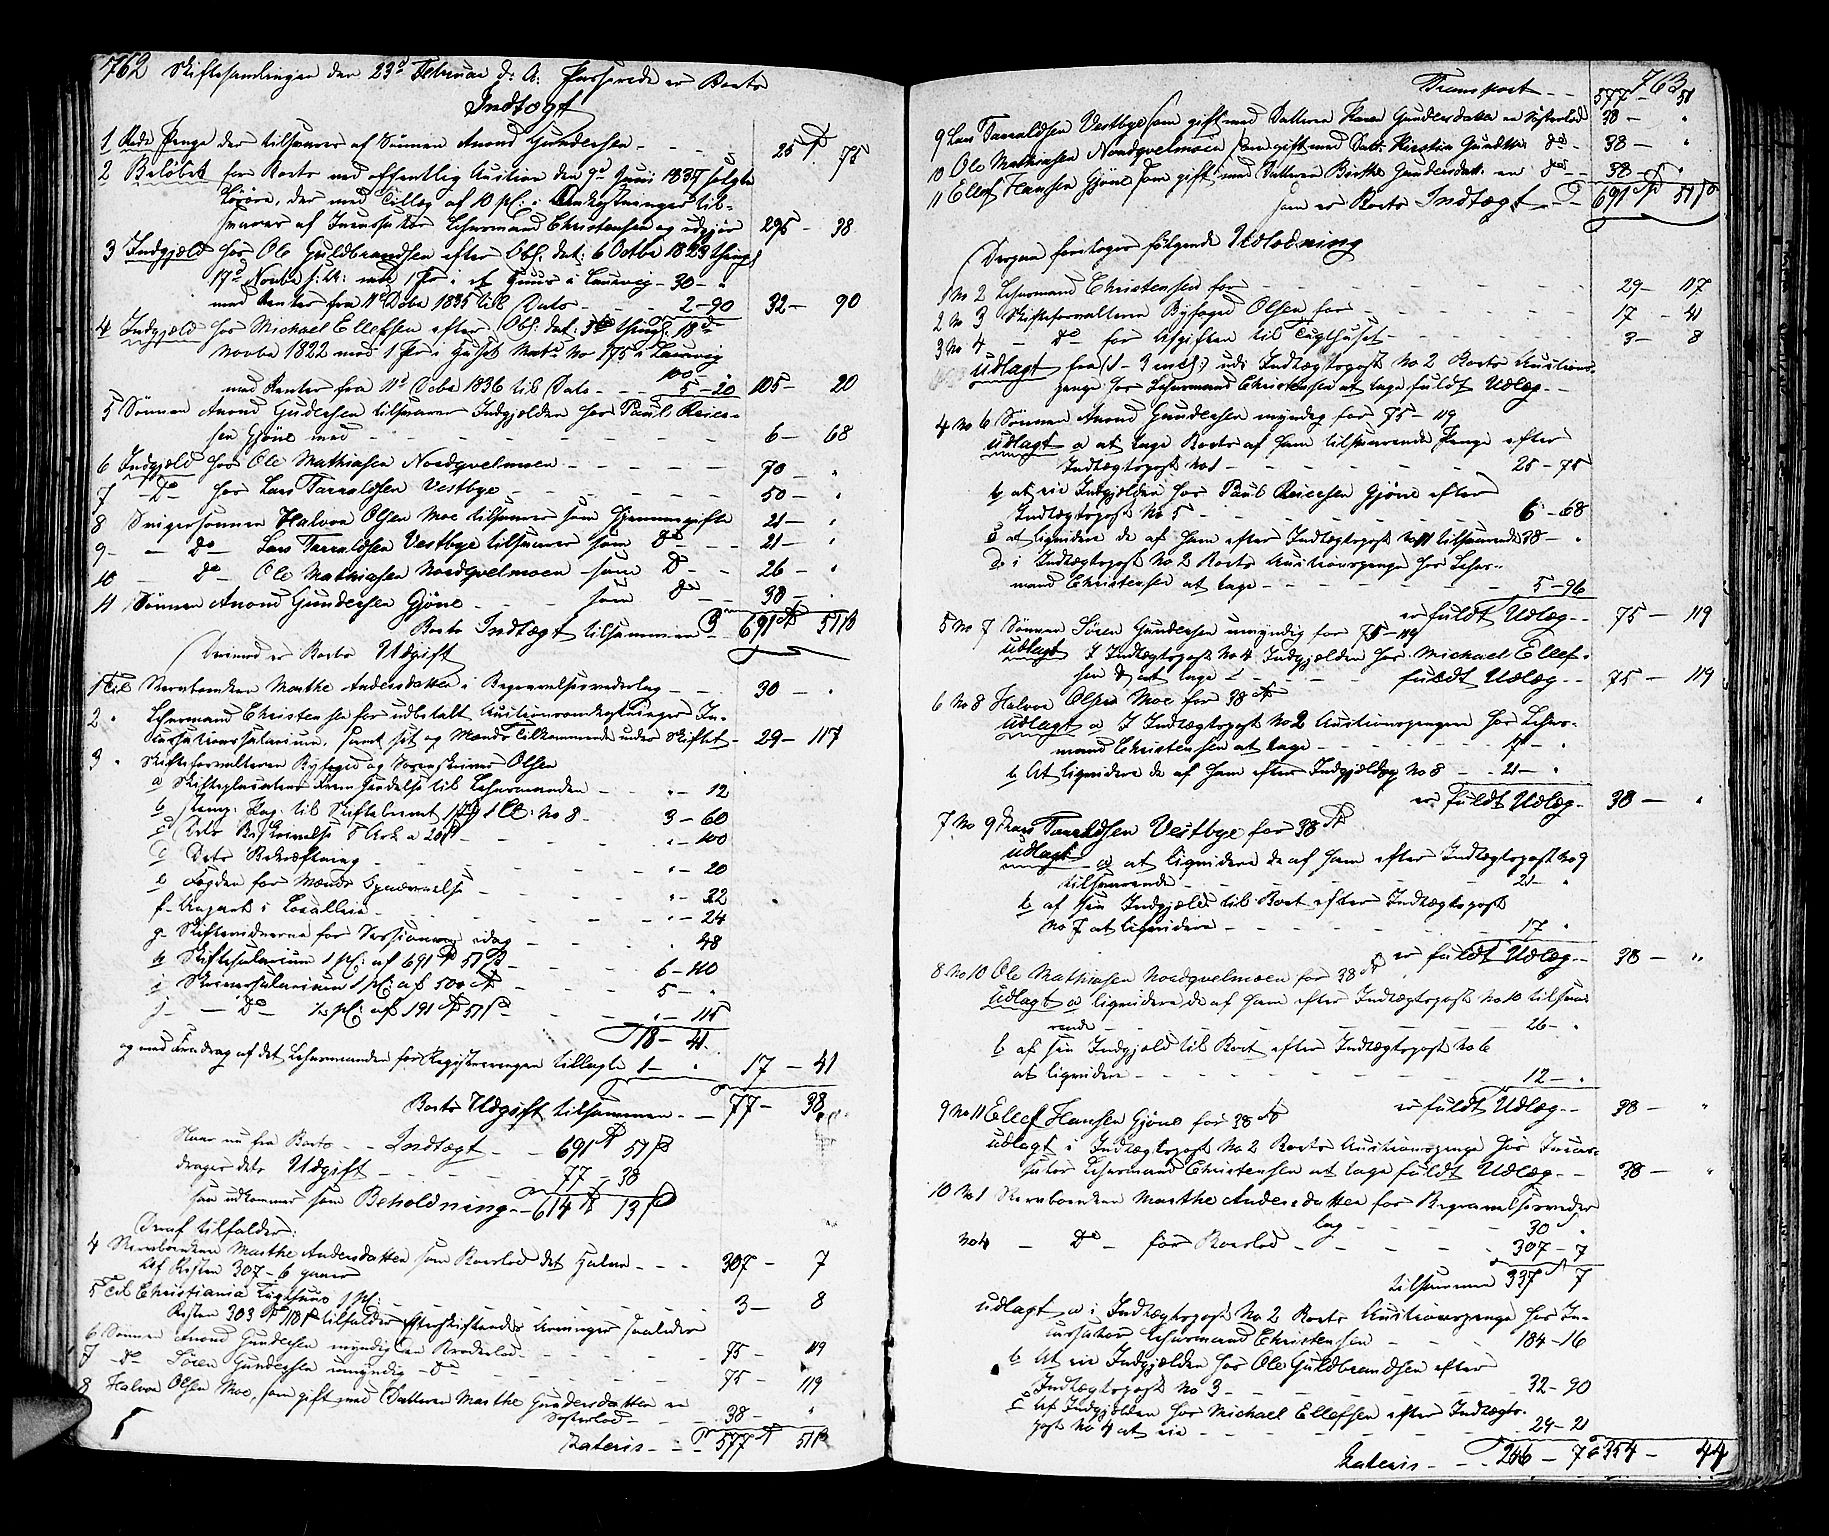 762 Skiftesamlingen den 23de Februar d: A: passerede er Boets
Indtægt
1 Rede Penge der tilsvares af Sønnen Anond Gundersen - - - 25 75
2 Beløbet for Boets ved offentlig Auction den 9de Juni 1837 solgte
Løsøre, der med Tillæg af 10 pC: i Omkostninger til-
svares af Incassator Lehnsmand Christensen og udgjør 295 - 38
3 Indgjæld hos Ole Guldbrandsen efter Obl: dat: 6 Octbr 1829 thingl:
17de Novbr s: A: med 1 Pr: i et Huus i Laurvig - 30 - "
med Renter fra 11 Decbr 1835 til Dato - - - 2 - 90 32 - 90
4 Indgjæld hos Michael Ellefsen efter Obl: dat: 3die thingl: 18de
Novbr 1822 med 1 Pr: i Huset Matr: No 175 i Laurvig
100 -
med Renter fra 11te Decbr 1836 til Dato - - 5 - 20 105 - 20
5 Sønnen Anond Gundersen tilsvarer Indgjælden hos Paul Reier-
sen Gjøne med - - - - - - - 6 - 68
6 Indgjæld hos Ole Mathiasen Nordqvelmoen - - - - - 70 - "
7 - Do hos Lars Tarraldsen Vestbye - - - - - 50 - "
8 Svigersønnen Halvor Olsen Moe tilsvarer som Hjemmegifte 21 - "
9 - - Do - Lars Tarraldsen Vestbye tilsvarer som Do - - 21 - "
10 - Do - Ole Mathiasen Nordqvelmoen - som Do - - 26 - "
11 Sønnen Anond Gundersen Gjøne - - - som Do - - 38 - "
Boets Indtægt tilsammen - 691 51 ß
Derimod er Boets Udgift
1 Til Stervboenken Marthe Andersdatter i Begravelsesvederlag - - - 30 - "
2 " Lehnsmand Christensen for udbetalt Auctionsomkostninger In-
cassationssalarium, samt sit og Mænds tilkommende under Skiftet - 29 - 117
3 " Skifteforvalteren Byfoged og Sorenskriver Olsen
a Skifteplacaten Frem Sendelse til Lehnsmanden - - - " - 12
b Stemp: Pap: til Skiftebrevet 1ste Cl: No 8 - - 3 - 60
c Dets Beskrivelse 5 Ark a 20 ß - - - " - 100
d Dets Bekræftning - - - - " - 20
e Fogden for Mænds Opnævnelse - - - " - 22
f Anpart i Localleie - - - - " - 24
g Skiftevidnerne for Sessionen idag - - - " 48
h Skiftesalarium 1 pC: af 691 51 ß - - - 6 - 110
i Skriversalarium 1 pC: af 500 - - - 5 - "
j - - Do - ½ pC: af 191 51 ß - - - " - 115
18 - 41
og med Fradrag af det Lehnsmanden for Registreringen tillagte 1 - " 17 - 41
Boets Udgift tilsammen - - 77 - 38
Naar nu fra Boets - - Indtægt - - 691 51 ß
drages dets Udgift - - - 77 - 38
saa udkommer som Beholdning - - 614 13 ß
Deraf tilfalder:
4 Stervboenken Marthe Andersdatter som Boeslod det Halve - - - 307 - 7
Af Resten 307 - 6 gaaer
5 Til Christiania Tugthuus 1 pC: - - - - - 3 - 8
Resten 303 118 ß tilfalder Efterskiftende Arvinger saaledes
6 Sønnen Anond Gundersen myndig en Broderlod - - - - 75 - 119
7 - Do Søren Gundersen umyndig - Do - - - - 75 - 119
8 Halvor Olsen Moe, som gift med Datteren Marthe Gundersdatter en
Søsterlod - - - 38 - "
Lateris - - - 577 51 ß
763
Transport - - 577 - 51
9 Lars Tarraldsen Vestbye som gift med Datteren Karen Gundersdatter en Søsterlod 38 - "
10 Ole Mathiasen Nordqvelmoen som gift med Datt: Kirstin Gundersd: do - 38 - "
11 Ellef Hansen Gjøne som gift med Datteren Birthe Gundersdatt: en do - - 38 - "
som er Boets Indtægt - - 691 51 ß
Derpaa foretoges følgende Udlodning
1 No 2 Lehnsmand Christensen for - - - - - - 29 - 117
2 No 3 Skifteforvalteren Byfoged Olsen for - - - - - 17 - 41
3 No 4 - Do - for Afgiften til Tugthuset - - - - - 3 - 8
udlagt fra (1 - 3 incl:) udi Indtægtspost No 2 Boets Auctions-
penge hos Lehnsmand Christensen at tage fuldt Udlæg - -
4 No 6 Sønnen Anond Gundersen myndig for 75 - 119
udlagt a at tage Boets af ham tilsvarende Penge efter
Indtægtspost No 1 - - - - - - 25 - 75
b at eie Indgjælden hos Paul Reiersen Gjøne efter
Indtægtspost No 5 - - - - - 6 - 68
c at liqvidere de af ham efter Indtægtspost No 11 tilsvarende 38 - "
d i Indtægtspost No 2 Boets Auctionspenge hos Lehns-
mand Christensen at tage - - - - 5 - 96
er fuldt Udlæg - - 75 - 119
5 No 7 Sønnen Søren Gundersen umyndig for 75 - 119
udlagt I Indtægtspost No 4 Indgjælden hos Michael Ellef-
sen at tage - - - fuldt Udlæg - - 75 - 119
6 No 8 Halvor Olsen Moe for 38
udlagt a I Indtægtspost No 2 Auctionspengene hos Lehns-
mand Christensen at tage - - - - - 17 - "
b At liqvidere de af ham efter Indgjældspost No 8 - - 21 - "
er fuldt Udlæg - 38 - "
7 No 9 Lars Tarraldsen Vestbye for 38
udlagt a at liqvidere de af ham efter Indtægtspost No 9
tilsvarende - - - - - - 21 - "
b af sin Indgjæld til Boet efter Indtægtspost
No 7 at liqvidere - - - - - 17 "
er fuldt Udlæg - - 38 - "
8 No 10 Ole Mathiasen Nordqvelmoen for 38
udlagt a liqvidere de af ham efter Indtægtspost No 10 tilsva-
rende - - - - - - 26 - "
b af sin Indgjæld til Boet efter Indtægtspost No 6
at liqvidere - - - - - - 12 - "
er fuldt Udlæg - - 38 - "
9 No 11 Ellef Hansen Gjøne for 38
udlagt i Indtægtspost No 2 Boets Auctionspenge hos Incas-
sator Lehnsmand Christensen at tage fuldt Udlæg - - 38 - "
10 No 1 Stervboenken Marthe Andersdatter for Begravelsesveder
lag - - - - 30 "
No 4 - Do - for Boeslod - - - - 307 - 7
tilsammen 337 7
udlagt a i Indtægtspost No 2 Boets Auctionspenge hos In-
cassator Lehnsmand Christensen - - - 184 - 16
b At eie Indgjælden hos Ole Guldbrandsen efter
Indtægtspost No 3 - - - - - 32 - 90
c Af Indgjælden hos Michael Ellefsen efter Indtægts-
post No 4 at eie - - - - 29 - 21
Lateris - - - 246 - 7 354 - 44